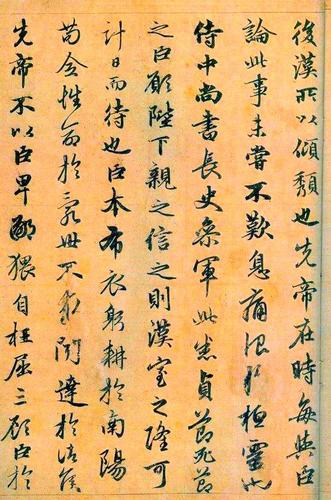 後漢所以傾頹也先帝在時每與臣
論此事未嘗不歎息痛恨於桓靈也
侍中尚書長史參軍此悉貞節死節
之臣願陛下親之信之則漢室之隆可
計日而待也臣本布衣躬耕於南陽
苟全性命於亂世不求聞達於諸侯
先帝不以臣卑鄙猥自枉屈三顧臣於